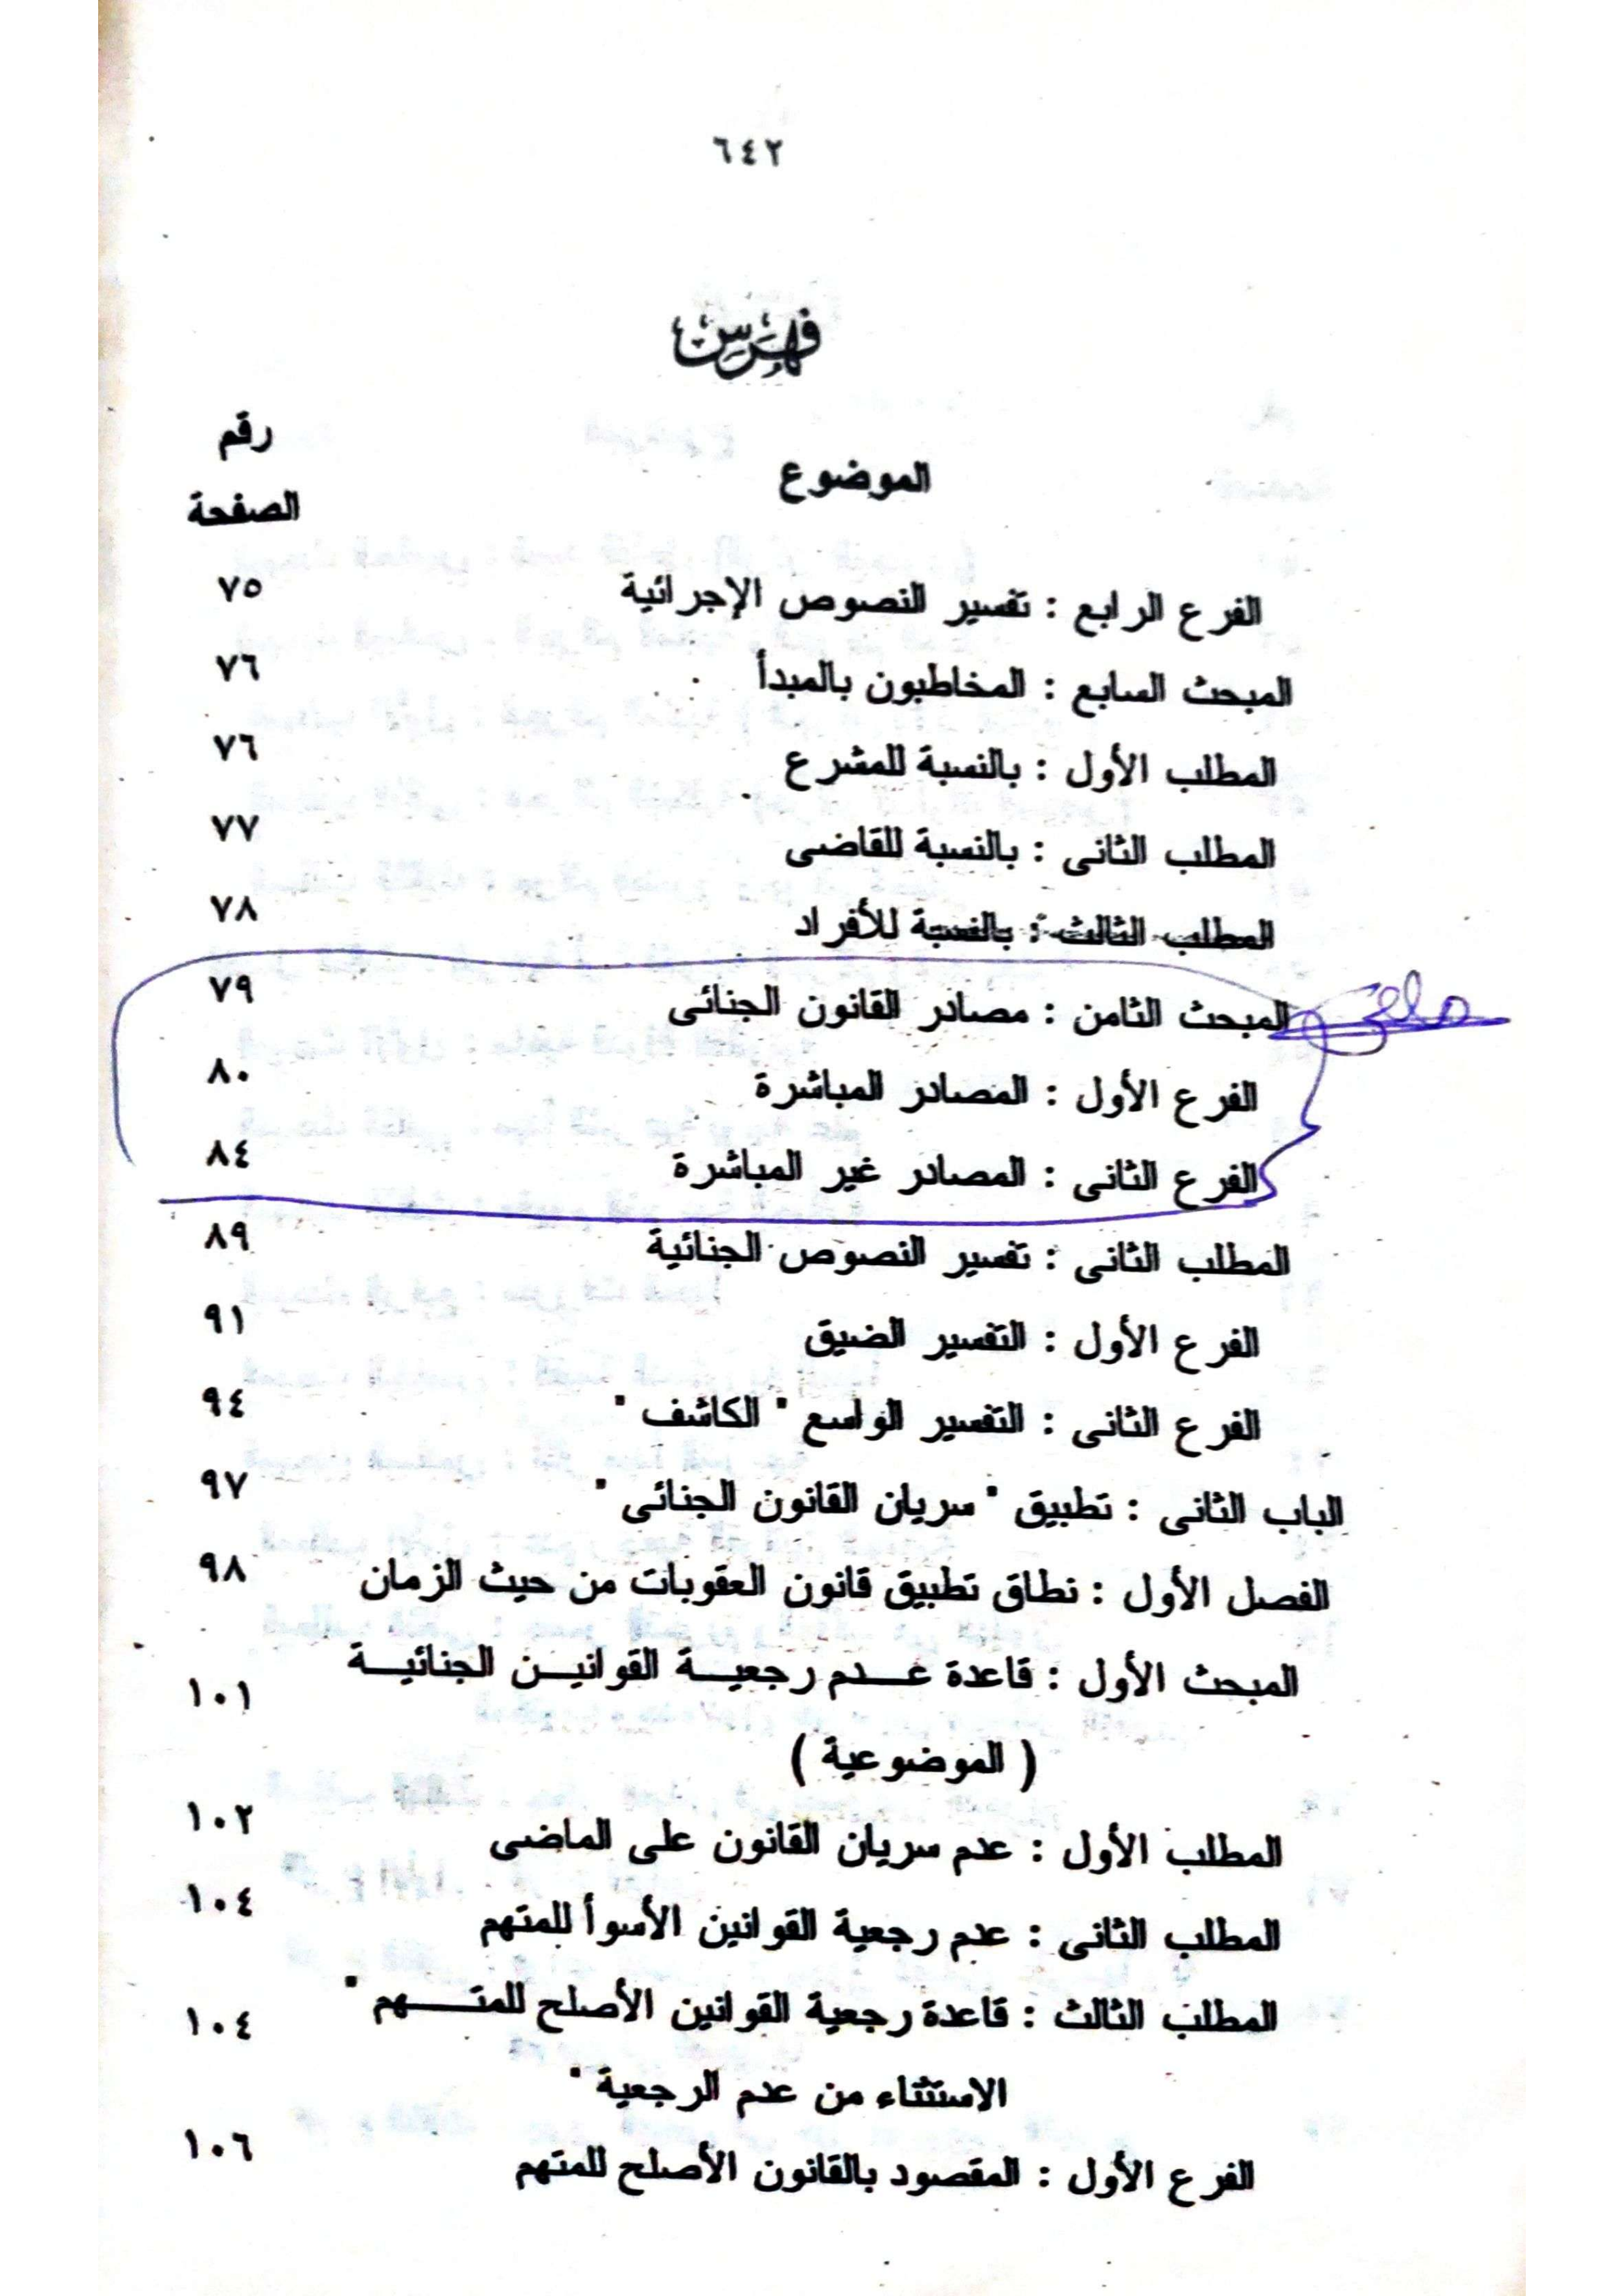 ٦٤٢
فهرس
رقم
الموضوع
الصفحة
الفرع الرابع : تفسير النصوص الإجرائية ٧٥
المبحث السابع : المخاطبون بالمبدأ ٧٦
المطلب الأول : بالنسبة للمشرع ٧٦
المطلب الثانى : بالنسبة للقاضى ٧٧
المطلب الثالث : بالنسبة للأفراد ٧٨
المبحث الثامن : مصادر القانون الجنائى ٧٩
الفرع الأول : المصادر المباشرة ٨٠
الفرع الثانى : المصادر غير المباشرة ٨٤
المطلب الثانى : تفسير النصوص الجنائية ٨٩
الفرع الأول : التفسير الضيق ٩١
الفرع الثانى : التفسير الواسع " الكاشف " ٩٤
الباب الثانى : تطبيق " سريان القانون الجنائى " ٩٧
الفصل الأول : نطاق تطبيق قانون العقوبات من حيث الزمان ٩٨
المبحث الأول : قاعدة عـدم رجعيـة القوانيـن الجنائيـة ١٠١
( الموضوعية )
المطلب الأول : عدم سريان القانون على الماضى ١٠٢
المطلب الثانى : عدم رجعية القوانين الأسوأ للمتهم ١٠٤
المطلب الثالث : قاعدة رجعية القوانين الأصلح للمتـــهم " ١٠٤
الاستثناء من عدم الرجعية "
الفرع الأول : المقصود بالقانون الأصلح للمتهم ١٠٦